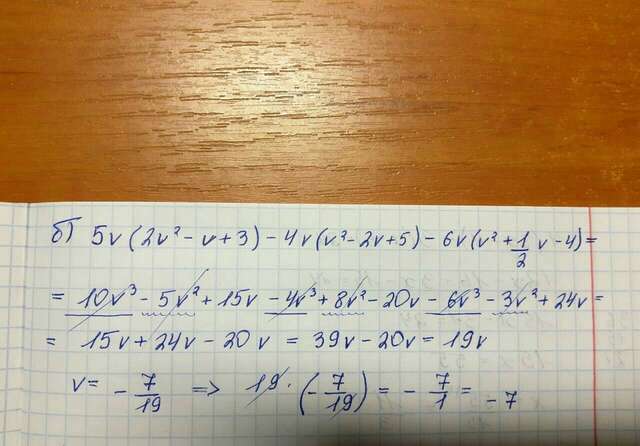 б) 5v(2v² - v + 3) - 4v(v² - 2v + 5) - 6v(v² + 1/2 v - 4) =
= 10v³ - 5v² + 15v - 4v³ + 8v² - 20v - 6v³ - 3v² + 24v =
= 15v + 24v - 20v = 39v - 20v = 19v
v = - 7/19 => 19 · (- 7/19) = - 7/1 = -7